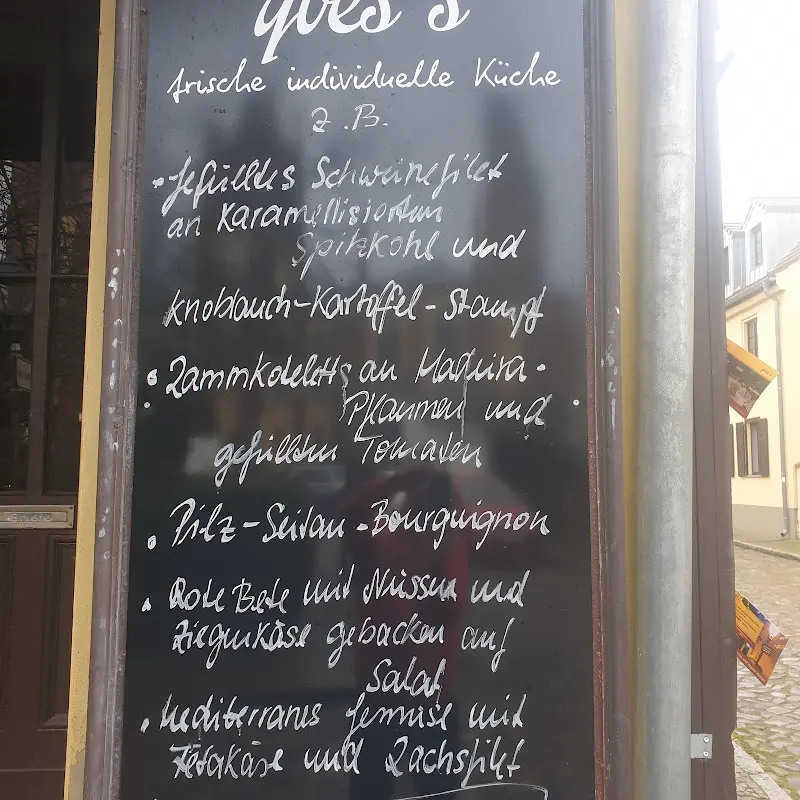 yves's
frische individuelle Küche
z.B.
• gefülltes Schweinefilet
an karamellisiertem
Spitzkohl und
Knoblauch-Kartoffel-Stampf
• Lammkoteletts an Madeira-
Pflaumen und
gefüllten Tomaten
• Pilz-Seitan-Bourguignon
• Rote Bete mit Nüssen und
Ziegenkäse gebacken auf
Salat
• Mediterranes Gemüse mit
Fetakäse und Lachsfilet